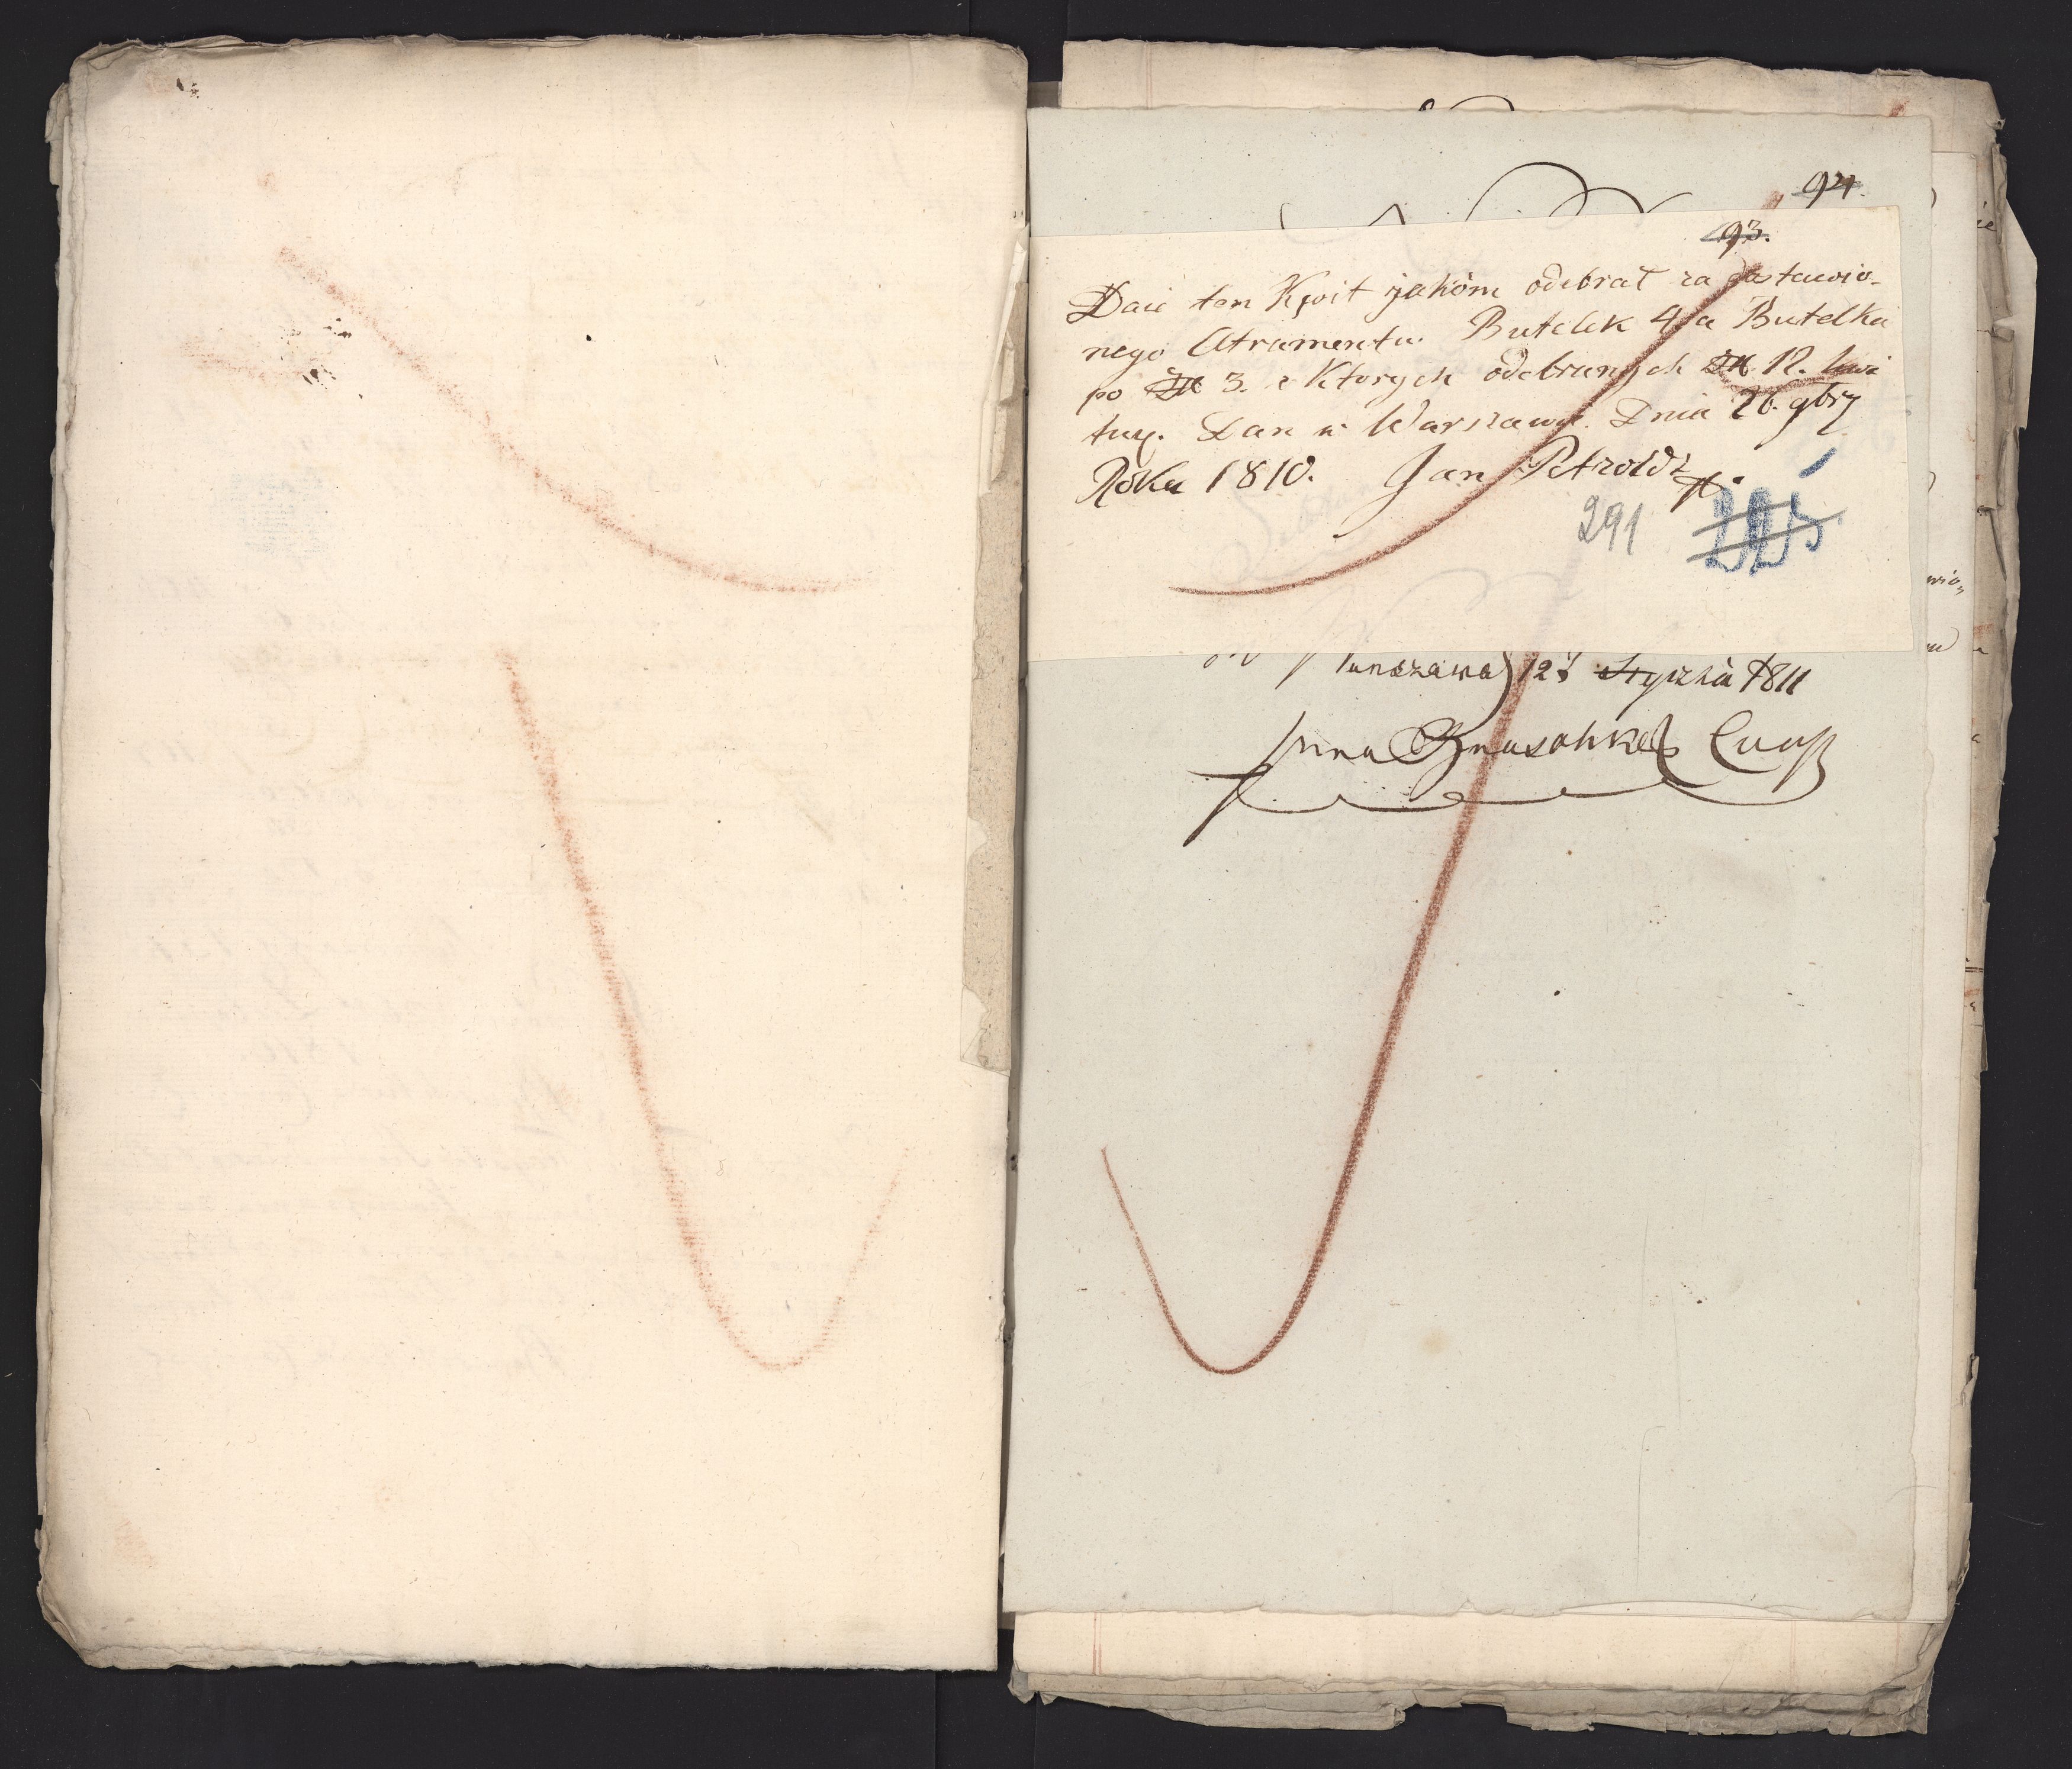 94.
93.
Daię ten Kwit jakom odebrał za dostawio-
nego Atramentu Butelek 4 a Butelka
po Zł 3. z Ktorych odebranych Zł 12. kwi
tuy. Dan w Warszawie Dnia 26. 9bry
Roku 1810. Jan Petzoldt
291 225
Warszawa 123 Stycznia 1811
Anna